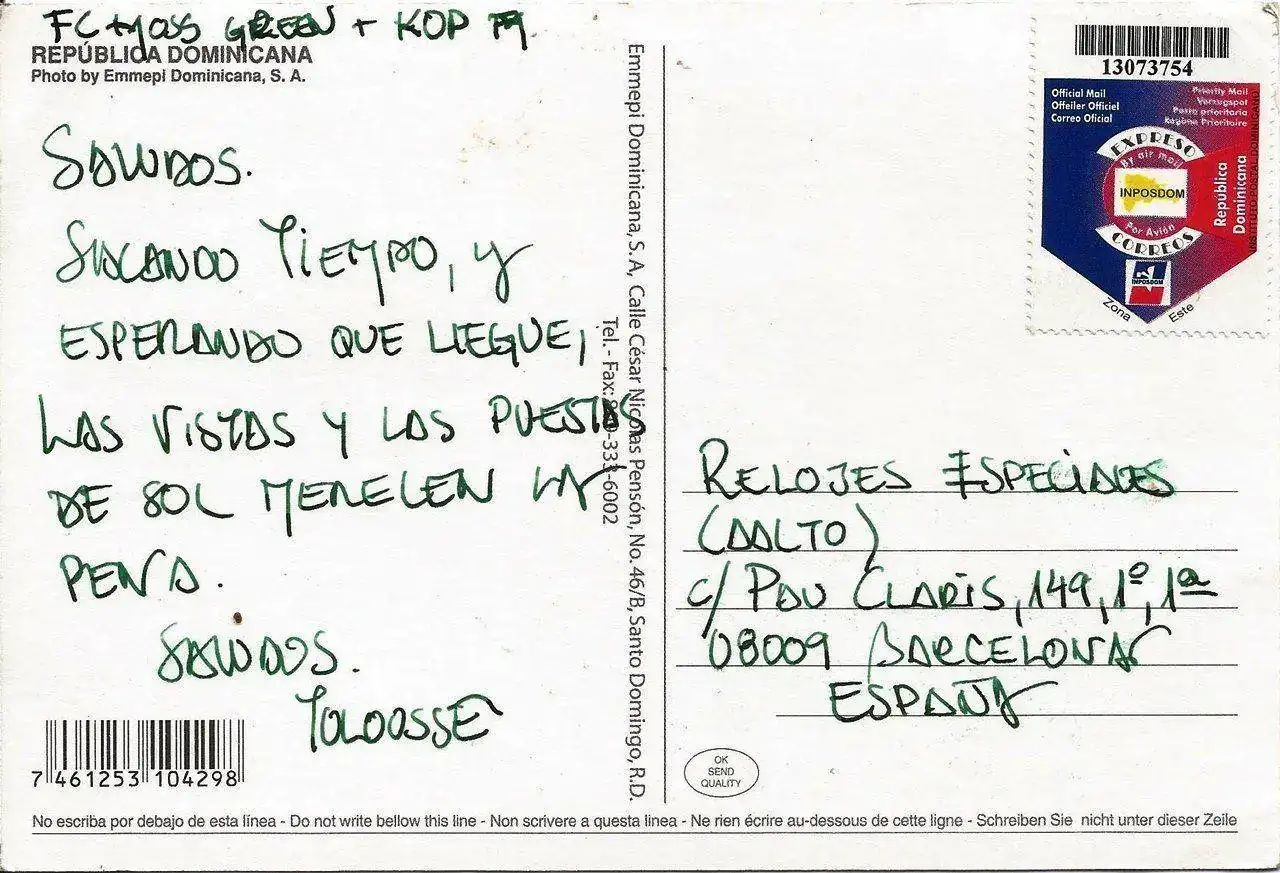 FC MOSS GREEN + KOP M
REPÚBLICA DOMINICANA
Photo by Emmepi Dominicana, S. A.
SALUDOS.
SACANDO TIEMPO, Y
ESPERANDO QUE LLEGUE,
LAS VISTAS Y LAS PUESTAS
DE SOL MERECEN LA
PENA.
SALUDOS.
TOLOOSSE
7 461253 104298
Emmepi Dominicana, S. A, Calle César Nicolas Pensón, No. 46/B, Santo Domingo, R.D.
Tel.- Fax: -333-6002
13073754
Official Mail
Offeiler Officiel
Correo Oficial
Priority Mail
Vorzugspot
Porte prioritaria
Régime Prioritaire
EXPRESO
By air mail
INPOSDOM
Por Avión
CORREOS
República
Dominicana
INSTITUTO POSTAL DOMINICANO
INPOSDOM
Zona Este
RELOJES ESPECIALES
(AALTO)
C/ PAU CLARIS, 149, 1º, 1ª
08009 BARCELONA
ESPAÑA
OK
SEND
QUALITY
No escriba por debajo de esta línea - Do not write bellow this line - Non scrivere a questa linea - Ne rien écrire au-dessous de cette ligne - Schreiben Sie nicht unter dieser Zeile